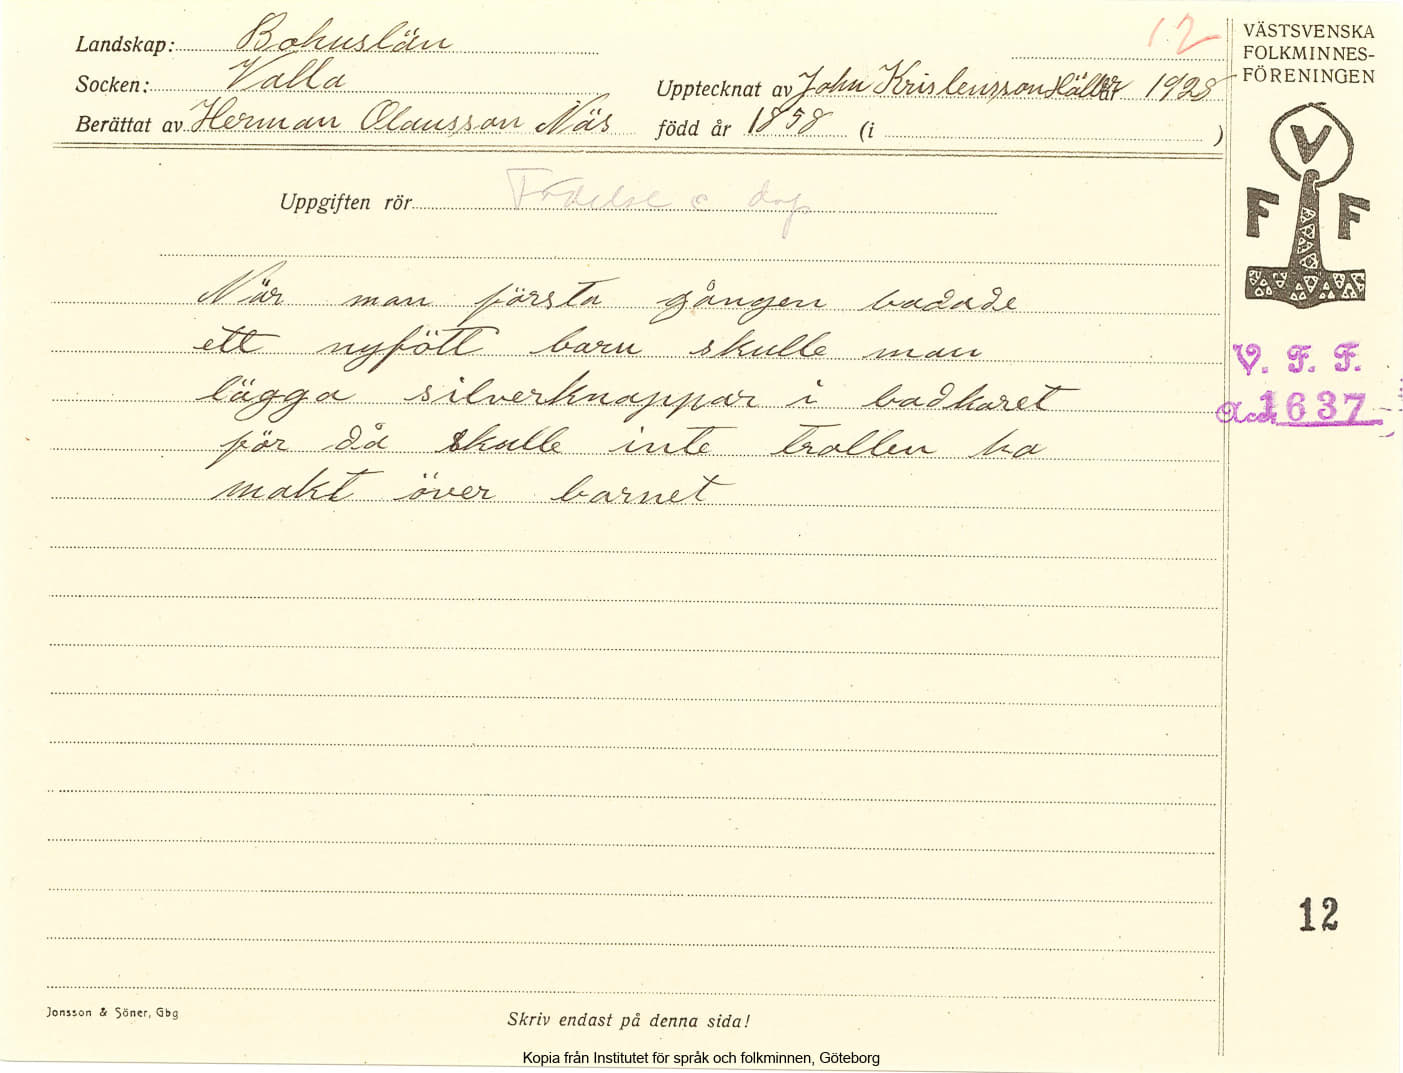 Landskap: Bohuslän
12
Socken: Valla
Upptecknat av John Kristensson Hälle år 1928
Berättat av Herman Olausson Näs
född år 1858 (i )
VÄSTSVENSKA
FOLKMINNES-
FÖRENINGEN
V
F F
Uppgiften rör Födelse o dop
När man första gången badade
ett nyfött barn skulle man
lägga silverknappar i badkaret
för då skulle inte trollen ha
makt över barnet
V. F. F.
Acc. 1637
12
Jonsson & Söner, Gbg
Skriv endast på denna sida!
Kopia från Institutet för språk och folkminnen, Göteborg